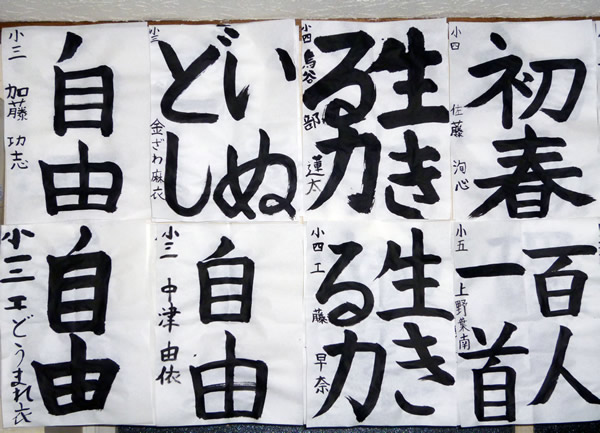 自由
小三 加藤 功志
いぬ
どし
小三 金ざわ麻衣
生き
る力
小四 鳥谷部 蓮太
初春
小四 佐藤 洵心
自由
小三 工どうまれ衣
自由
小三 中津 由依
生き
る力
小四 工藤 早奈
百人
一首
小五 上野葉南